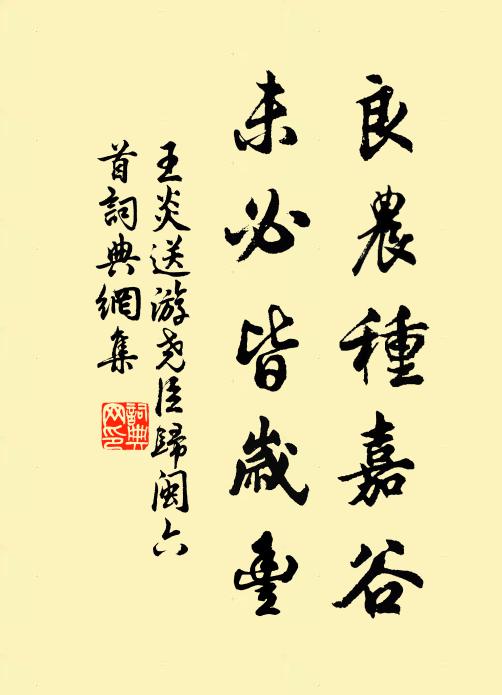 良農種嘉谷
未必皆歲豐
王炎送游堯臣歸閩六
首詞典網集
詞典
网印